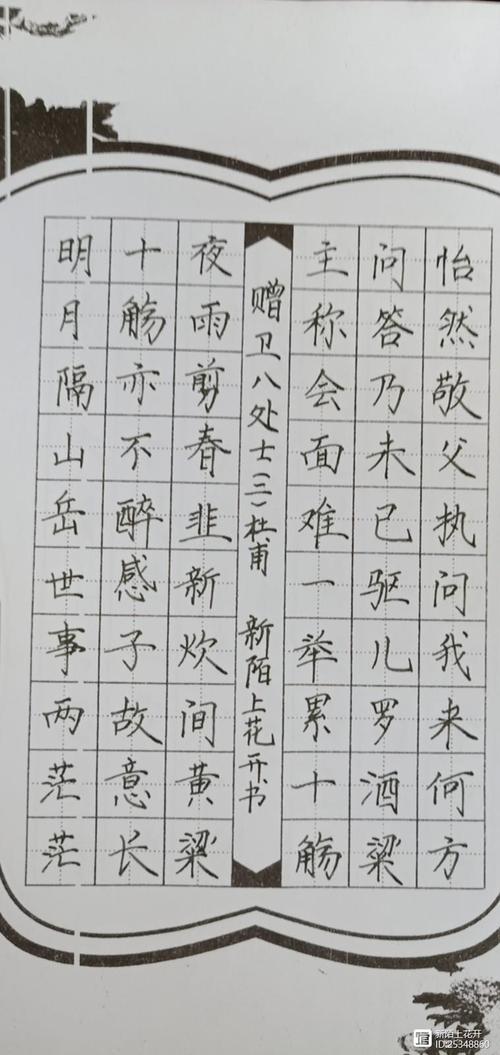 怡然敬父执问我来何方
问答乃未已驱儿罗酒粱
主称会面难一举累十觞
赠卫八处士(二)杜甫 新陌上花开书
夜雨剪春韭新炊间黄粱
十觞亦不醉感子故意长
明月隔山岳世事两茫茫
新陌上花开
ID:25348860